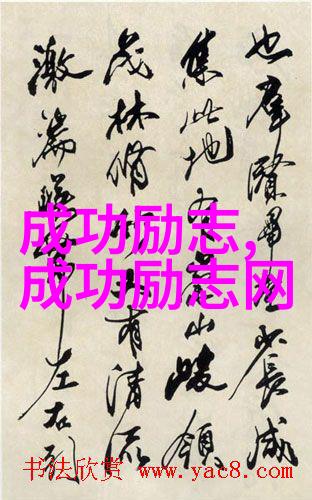 也羣賢畢至少長咸
集此地有崇山峻領
茂林脩竹又有清流
激湍暎帶左右引
成功励志,
成功励志网
书法欣赏 www.yac8.com